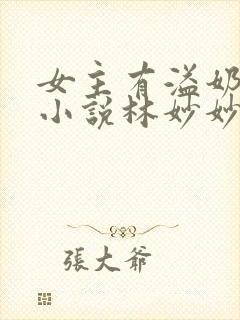 女主有溢奶
小說林妙妙
張大爺